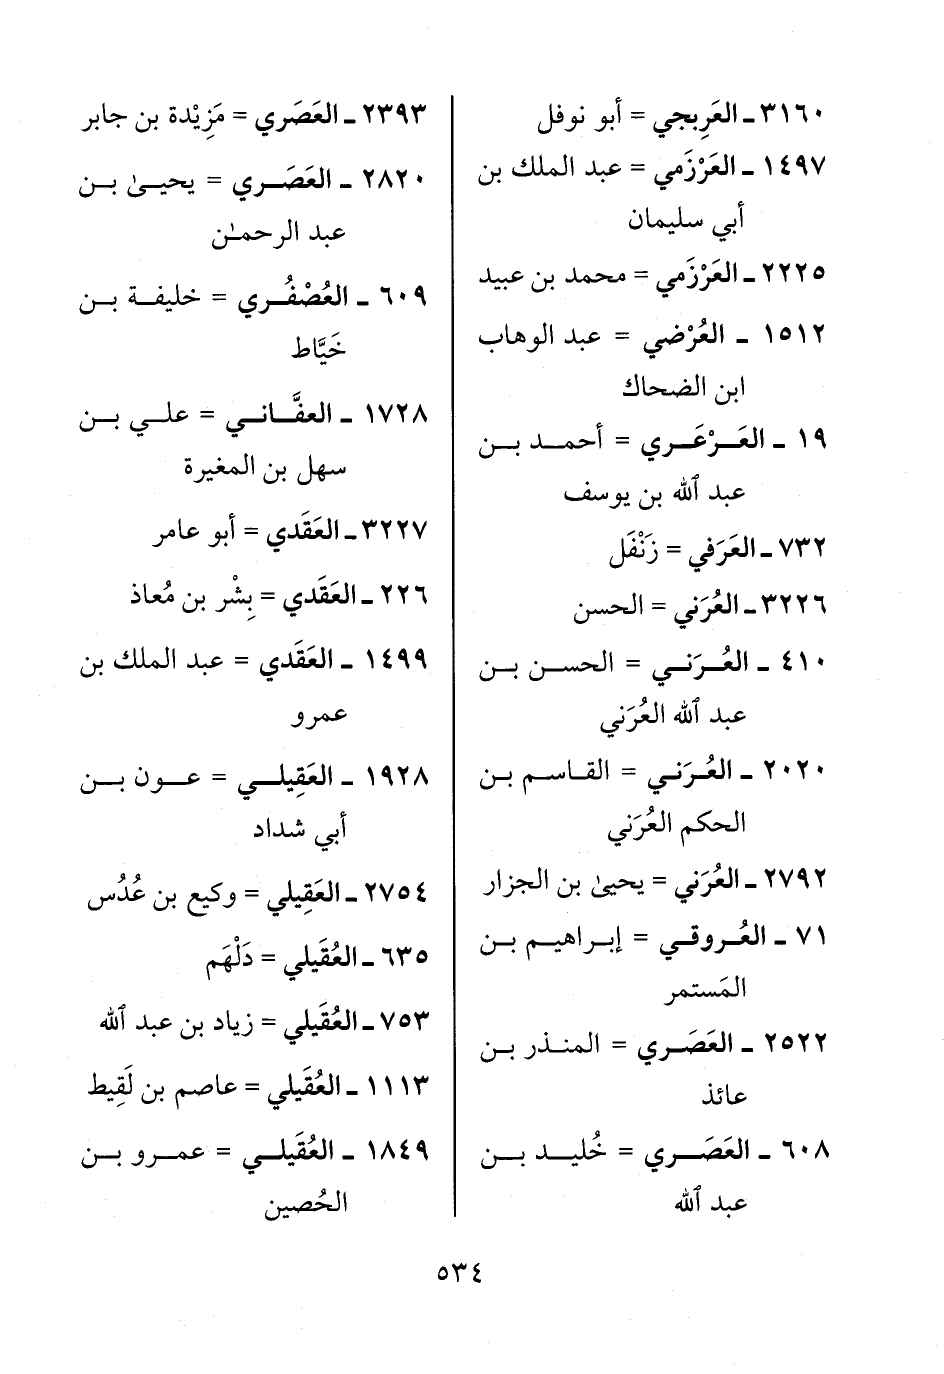 ٣١٦٠ ـ العَرِيجي = أبو نوفل
١٤٩٧ ـ العَرْزَمي = عبد الملك بن
أبي سليمان
٢٢٢٥ ـ العَرْزَمي = محمد بن عبيد
١٥١٢ ـ العُرْضي = عبد الوهاب
ابن الضحاك
١٩ ـ العَـرْعَـري = أحمـد بـن
عبد ٱلله بن يوسف
٧٣٢ ـ العَرَفي = زَنْفَل
٣٢٢٦ ـ العُرَني = الحسن
٤١٠ ـ العُـرَنـي = الحسـن بـن
عبد ٱلله العُرَني
٢٠٢٠ ـ العُـرَنـي = القـاسـم بـن
الحكم العُرَني
٢٧٩٢ ـ العُرَني = يحيىٰ بن الجزار
٧١ ـ العُـروقـي = إبـراهيـم بـن
المَستمر
٢٥٢٢ ـ العَصَـري = المنـذر بـن
عائذ
٦٠٨ ـ العَصَـري = خُليـد بـن
عبد ٱلله
٢٣٩٣ ـ العَصَري = مَزِيْدة بن جابر
٢٨٢٠ ـ العَصَـري = يحيـىٰ بـن
عبد الرحمـٰن
٦٠٩ ـ العُصْفُـري = خليفـة بـن
خَيَّاط
١٧٢٨ ـ العفَّـانـي = علـي بـن
سهل بن المغيرة
٣٢٢٧ ـ العَقَدي = أبو عامر
٢٢٦ ـ العَقَدي = بِشْر بن مُعاذ
١٤٩٩ ـ العَقَدي = عبد الملك بن
عمرو
١٩٢٨ ـ العَقِيلـي = عـون بـن
أبي شداد
٢٧٥٤ ـ العَقِيلي = وكيع بن عُدُس
٦٣٥ ـ العُقَيلي = دَلْهَم
٧٥٣ ـ العُقَيلي = زياد بن عبد ٱلله
١١١٣ ـ العُقَيلي = عاصم بن لَقِيط
١٨٤٩ ـ العُقَيلـي = عمـرو بـن
الحُصين
٥٣٤